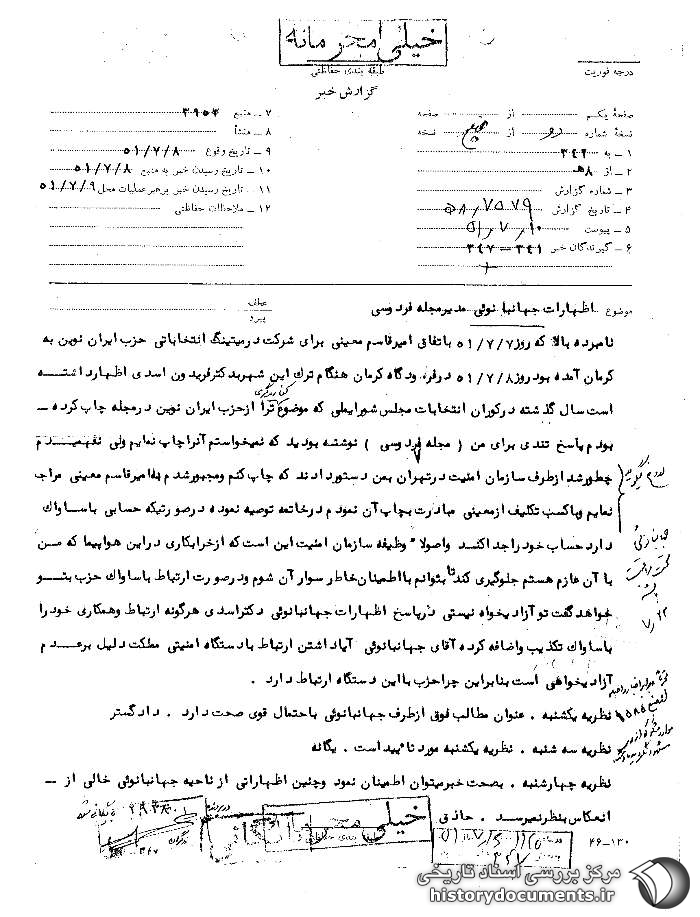 خیلی محرمانه
طبقه بندی حفاظتی
گزارش خبر
درجه فوریت
صفحهٔ یکم از صفحه
نسخهٔ شماره از نسخه
۱ ـ به ۳۴۲
۲ ـ از ۸ﻫ
۳ ـ شماره گزارش
۴ ـ تاریخ گزارش ۵۸٫۷۵۷۹
۵ ـ پیوست ۵۱٫۷٫۱۰
۶ ـ گیرندگان خبر ۳۴۱ – ۳۴۷
۷ ـ منبع ۳۹۵۳
۸ ـ منشأ
۹ ـ تاریخ وقوع ۵۱/۷/۸
۱۰ ـ تاریخ رسیدن خبر به منبع ۵۱/۷/۸
۱۱ ـ تاریخ رسیدن خبر برهبر عملیات محل ۵۱/۷/۹
۱۲ ـ ملاحظات حفاظتی
موضوع اظهارات جهانبانوئی مدیر مجله فردوسی
عطف
پیرو
نامبرده بالا که روز ۵۱/۷/۷ باتفاق امیرقاسم معینی برای شرکت در میتینگ انتخاباتی حزب ایران نوین به
کرمان آمده بود روز ۵۱/۷/۸ در فرودگاه کرمان هنگام ترک این شهر بدکتر فریدون اسدی اظهار داشته
است سال گذشته در کوران انتخابات مجلس شورایملی که موضوع ترا از حزب ایران نوین در مجله چاپ کرده ـ
بودم پاسخ تندی برای من ( مجله فردوسی ) نوشته بودید که نمیخواستم آنرا چاپ نمایم ولی نفهمیدم
چطور شد از طرف سازمان امنیت در تهران بمن دستور دادند که چاپ کنم و مجبور شدم به امیرقاسم معینی مراجعه
نمایم و باکسب تکلیف از معینی مبادرت بچاپ آن نمودم در خاتمه توصیه نموده در صورتیکه حسابی باساواک
دارد حساب خود را جدا کند واصولا" وظیفه سازمان امنیت این است که از خرابکاری در این هواپیما که من
با آن عازم هستم جلوگیری کند تا بتوانم با اطمینان خاطر سوار آن شوم و در صورت ارتباط باساواک حزب بتو
خواهد گفت تو آزادیخواه نیستی در پاسخ اظهارات جهانبانوئی دکتر اسدی هرگونه ارتباط وهمکاری خود را
باساواک تکذیب واضافه کرده آقای جهانبانوئی آیا داشتن ارتباط بادستگاه امنیتی مملکت دلیل بر عدم
آزادیخواهی است بنابراین چرا حزب با این دستگاه ارتباط دارد .
نظریه یکشنبه . عنوان مطالب فوق از طرف جهانبانوئی باحتمال قوی صحت دارد . دادگستر
نظریه سه شنبه . نظریه یکشنبه مورد تائید است . یگانه
نظریه چهارشنبه . بصحت خبر میتوان اطمینان نمود وچنین اظهاراتی از ناحیه جهانبانوئی خالی از ـ
انعکاس بنظر نمیرسد . حاذق
خیلی محرمانه
طبقه بندی حفاظتی
۴۶-۱۲۰
مرکز بررسی اسناد تاریخی
historydocuments.ir